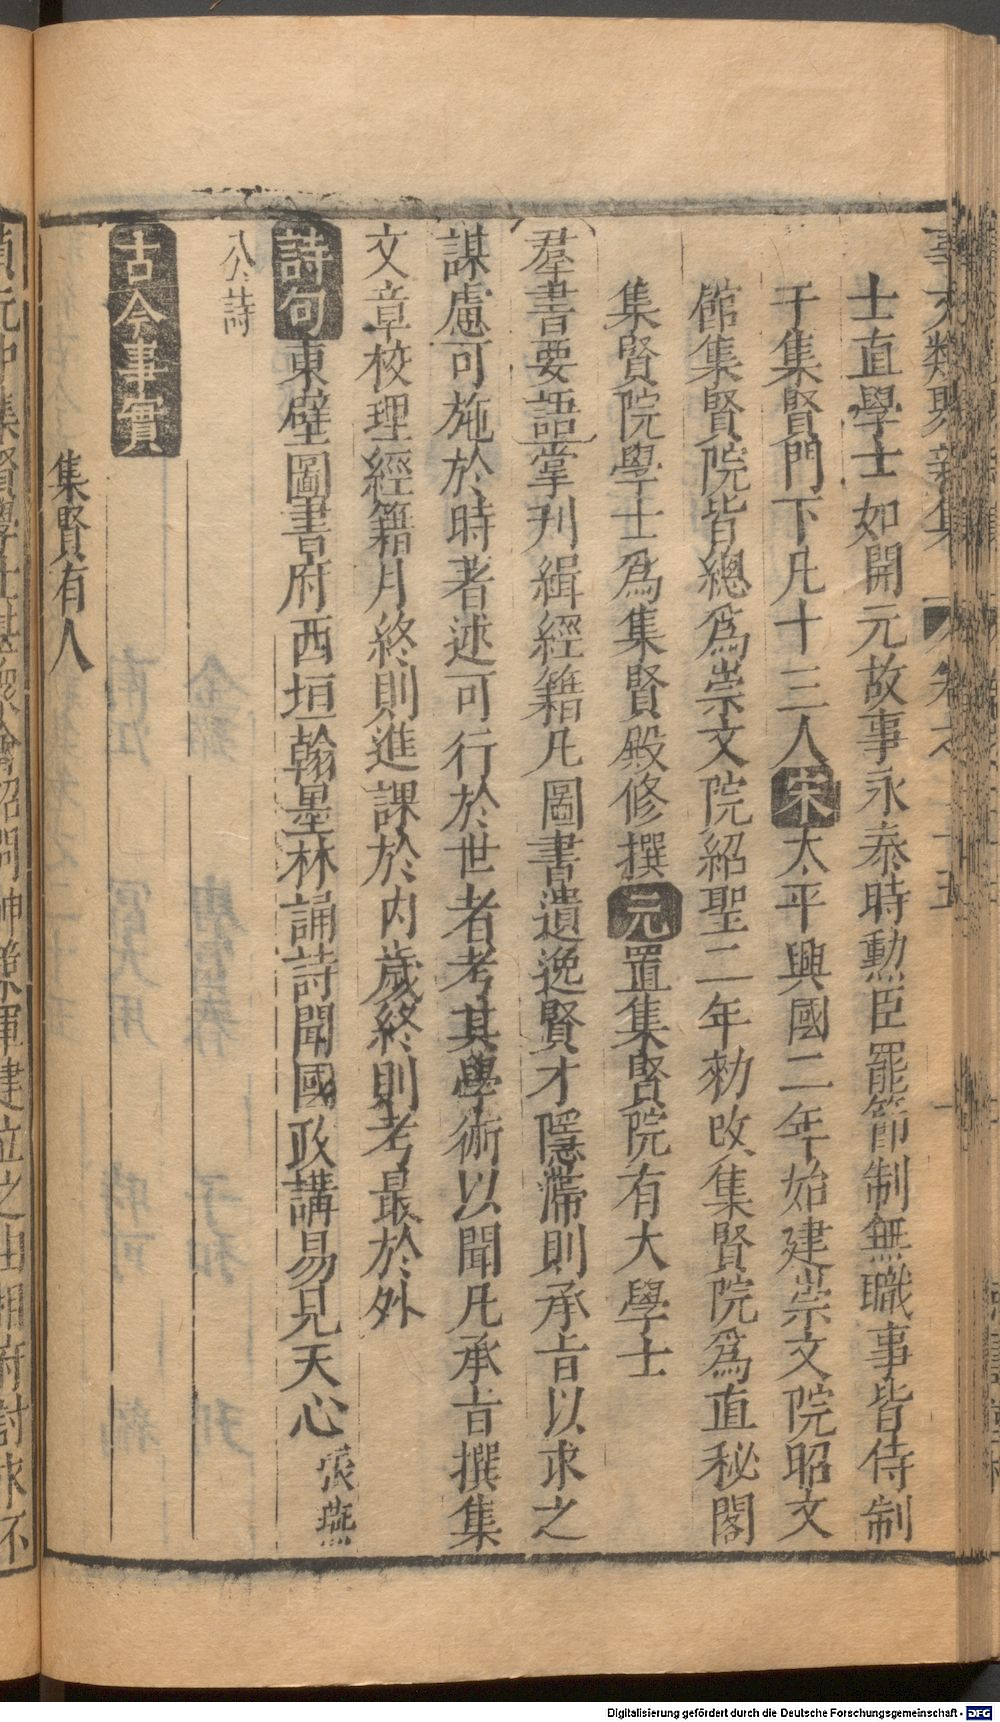 事文類聚新集 卷之二十五
士直學士如開元故事永泰時勲臣罷節制無職事皆侍制
于集賢門下凡十三人宋太平興國二年始建崇文院昭文
館集賢院皆總爲崇文院紹聖二年勑改集賢院爲直秘閣
集賢院學士爲集賢殿修撰元置集賢院有大學士
羣書要語掌刋緝經籍凡圖書遺逸賢才隱滯則承旨以求之
謀慮可施於時著述可行於世者考其學術以聞凡承旨撰集
文章校理經籍月終則進課於内歲終則考最於外
詩句東壁圖書府西垣翰墨林誦詩聞國政講易見天心張燕
公詩
古今事實
集賢有人
Digitalisierung gefördert durch die Deutsche Forschungsgemeinschaft - DFG